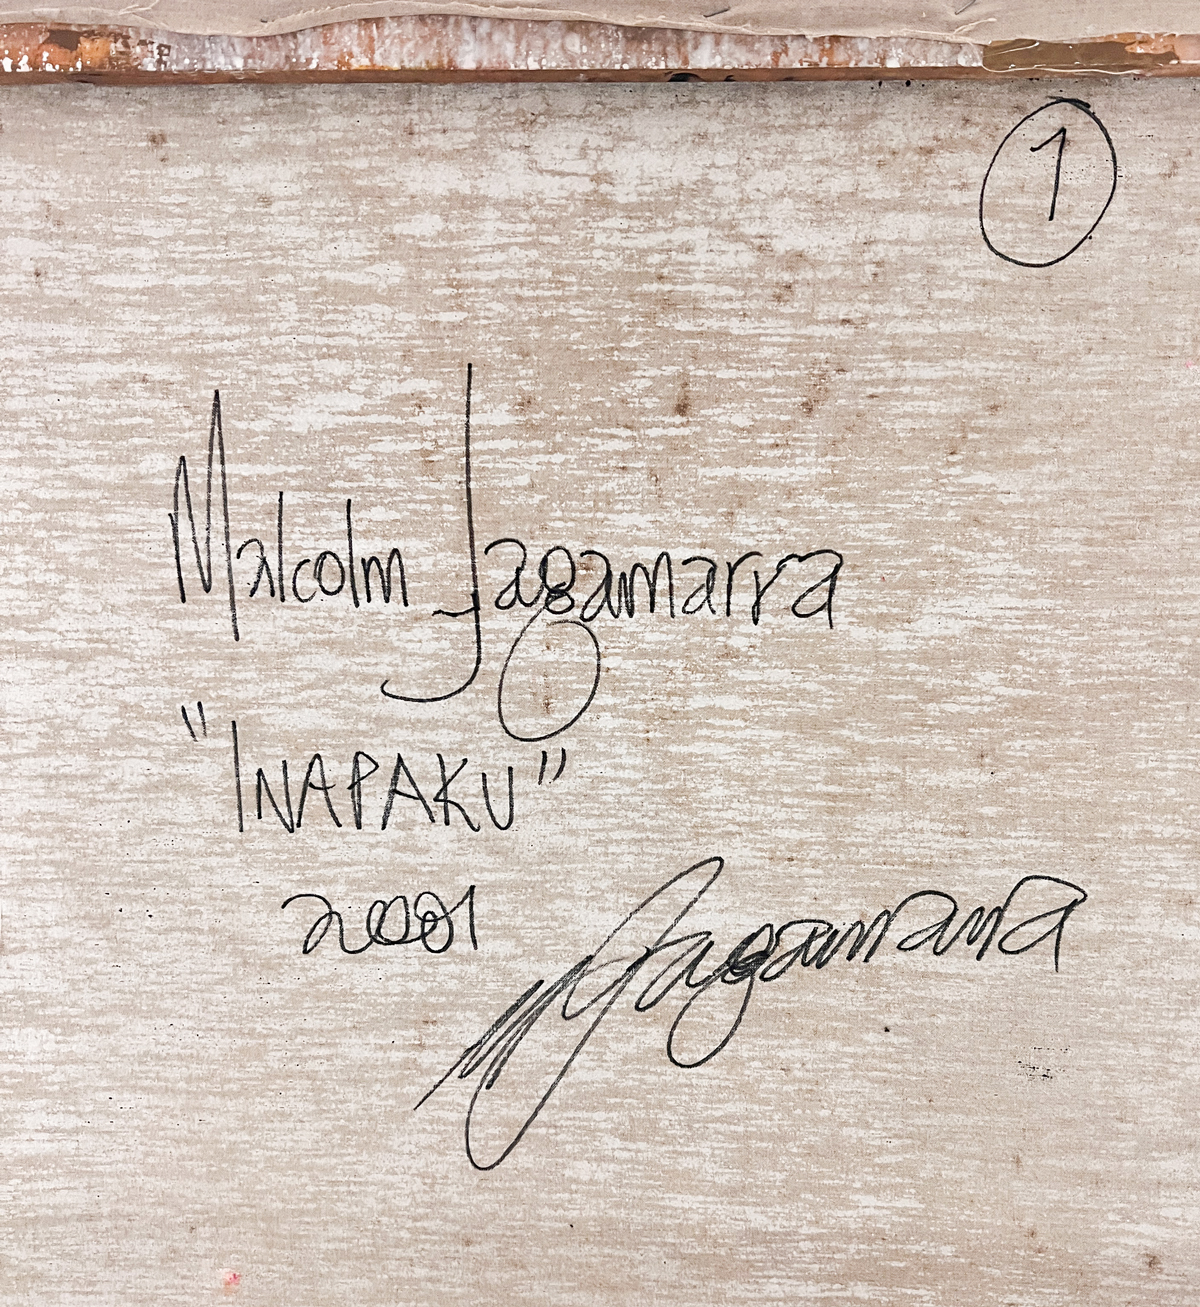 1
Malcolm Jagamarra
"INAPAKU"
2001
MJagamarra